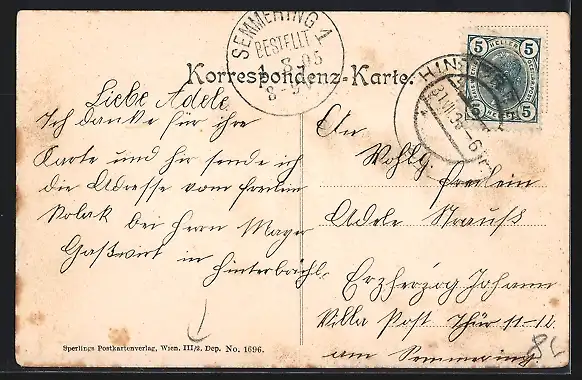 SEMMERING 1
BESTELLT
Korrespondenz-Karte.
5 HELLER 5
5 5
Liebe Adele
Ich danke für ihre
Karte und hir sende ich
die Adresse vom freilein
Polak bei Herrn Mayer
Gaßwirt in Hinterbrühl.
An
Wohlg. freilein
Adele Strauß
Erzherzog Johann
Villa Post Thür 11-12
am Semmering
84
Sperlings Postkartenverlag, Wien, III/3. Dep. No. 1696.